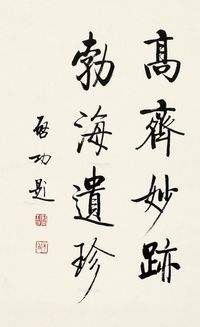 高齊妙跡
勃海遺珍
啟功題